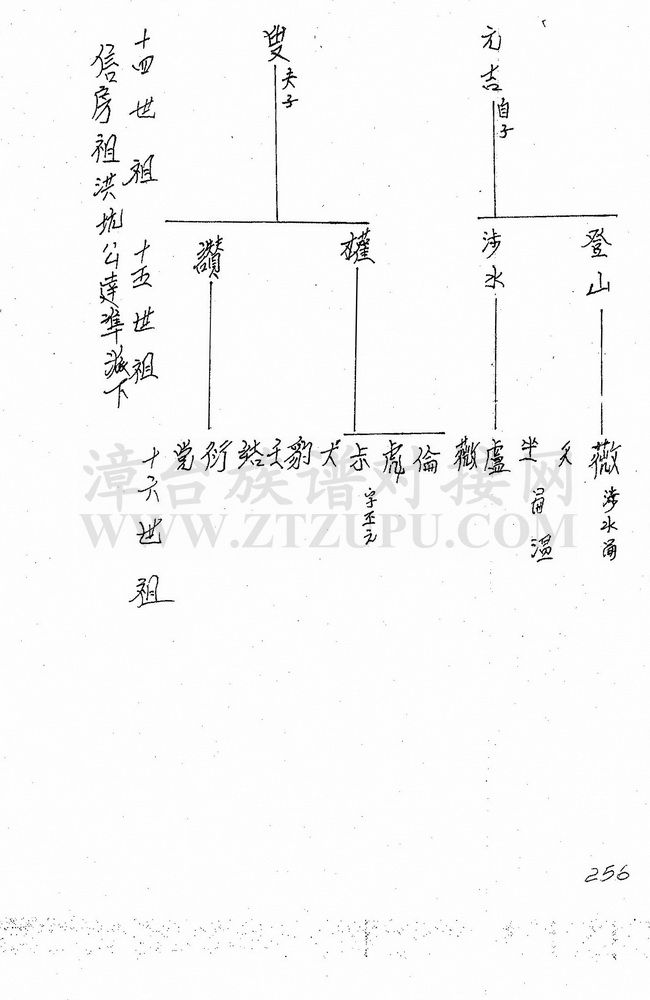 元吉 自子
叟 夫子
十四世祖
信房祖洪坑公達準派下
登山
涉水
權
讚
十五世祖
薇 涉水甬
坐 甬温
盧
薇
倫
彪
尗 字丕元
犬
豹
衍
党
十六世祖
漳台族谱对接网
WWW.ZTZUPU.COM
256